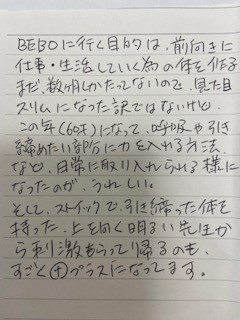 BEBOに行く目的は、前向きに
仕事・生活していく為の体を作る
まだ、数ヶ月しかたってないので、見た目
スリムになった訳ではないけど、
この年(60才)になって、呼吸や引き
締めたい部所に力を入れる方法
など、日常に取り入れられる様に
なったのが、うれしい。
そして、ストイックで、引き締った体を
持った、上を向く明るい先生か
ら刺激もらって帰るのも、
すごく⊕プラスになってます。